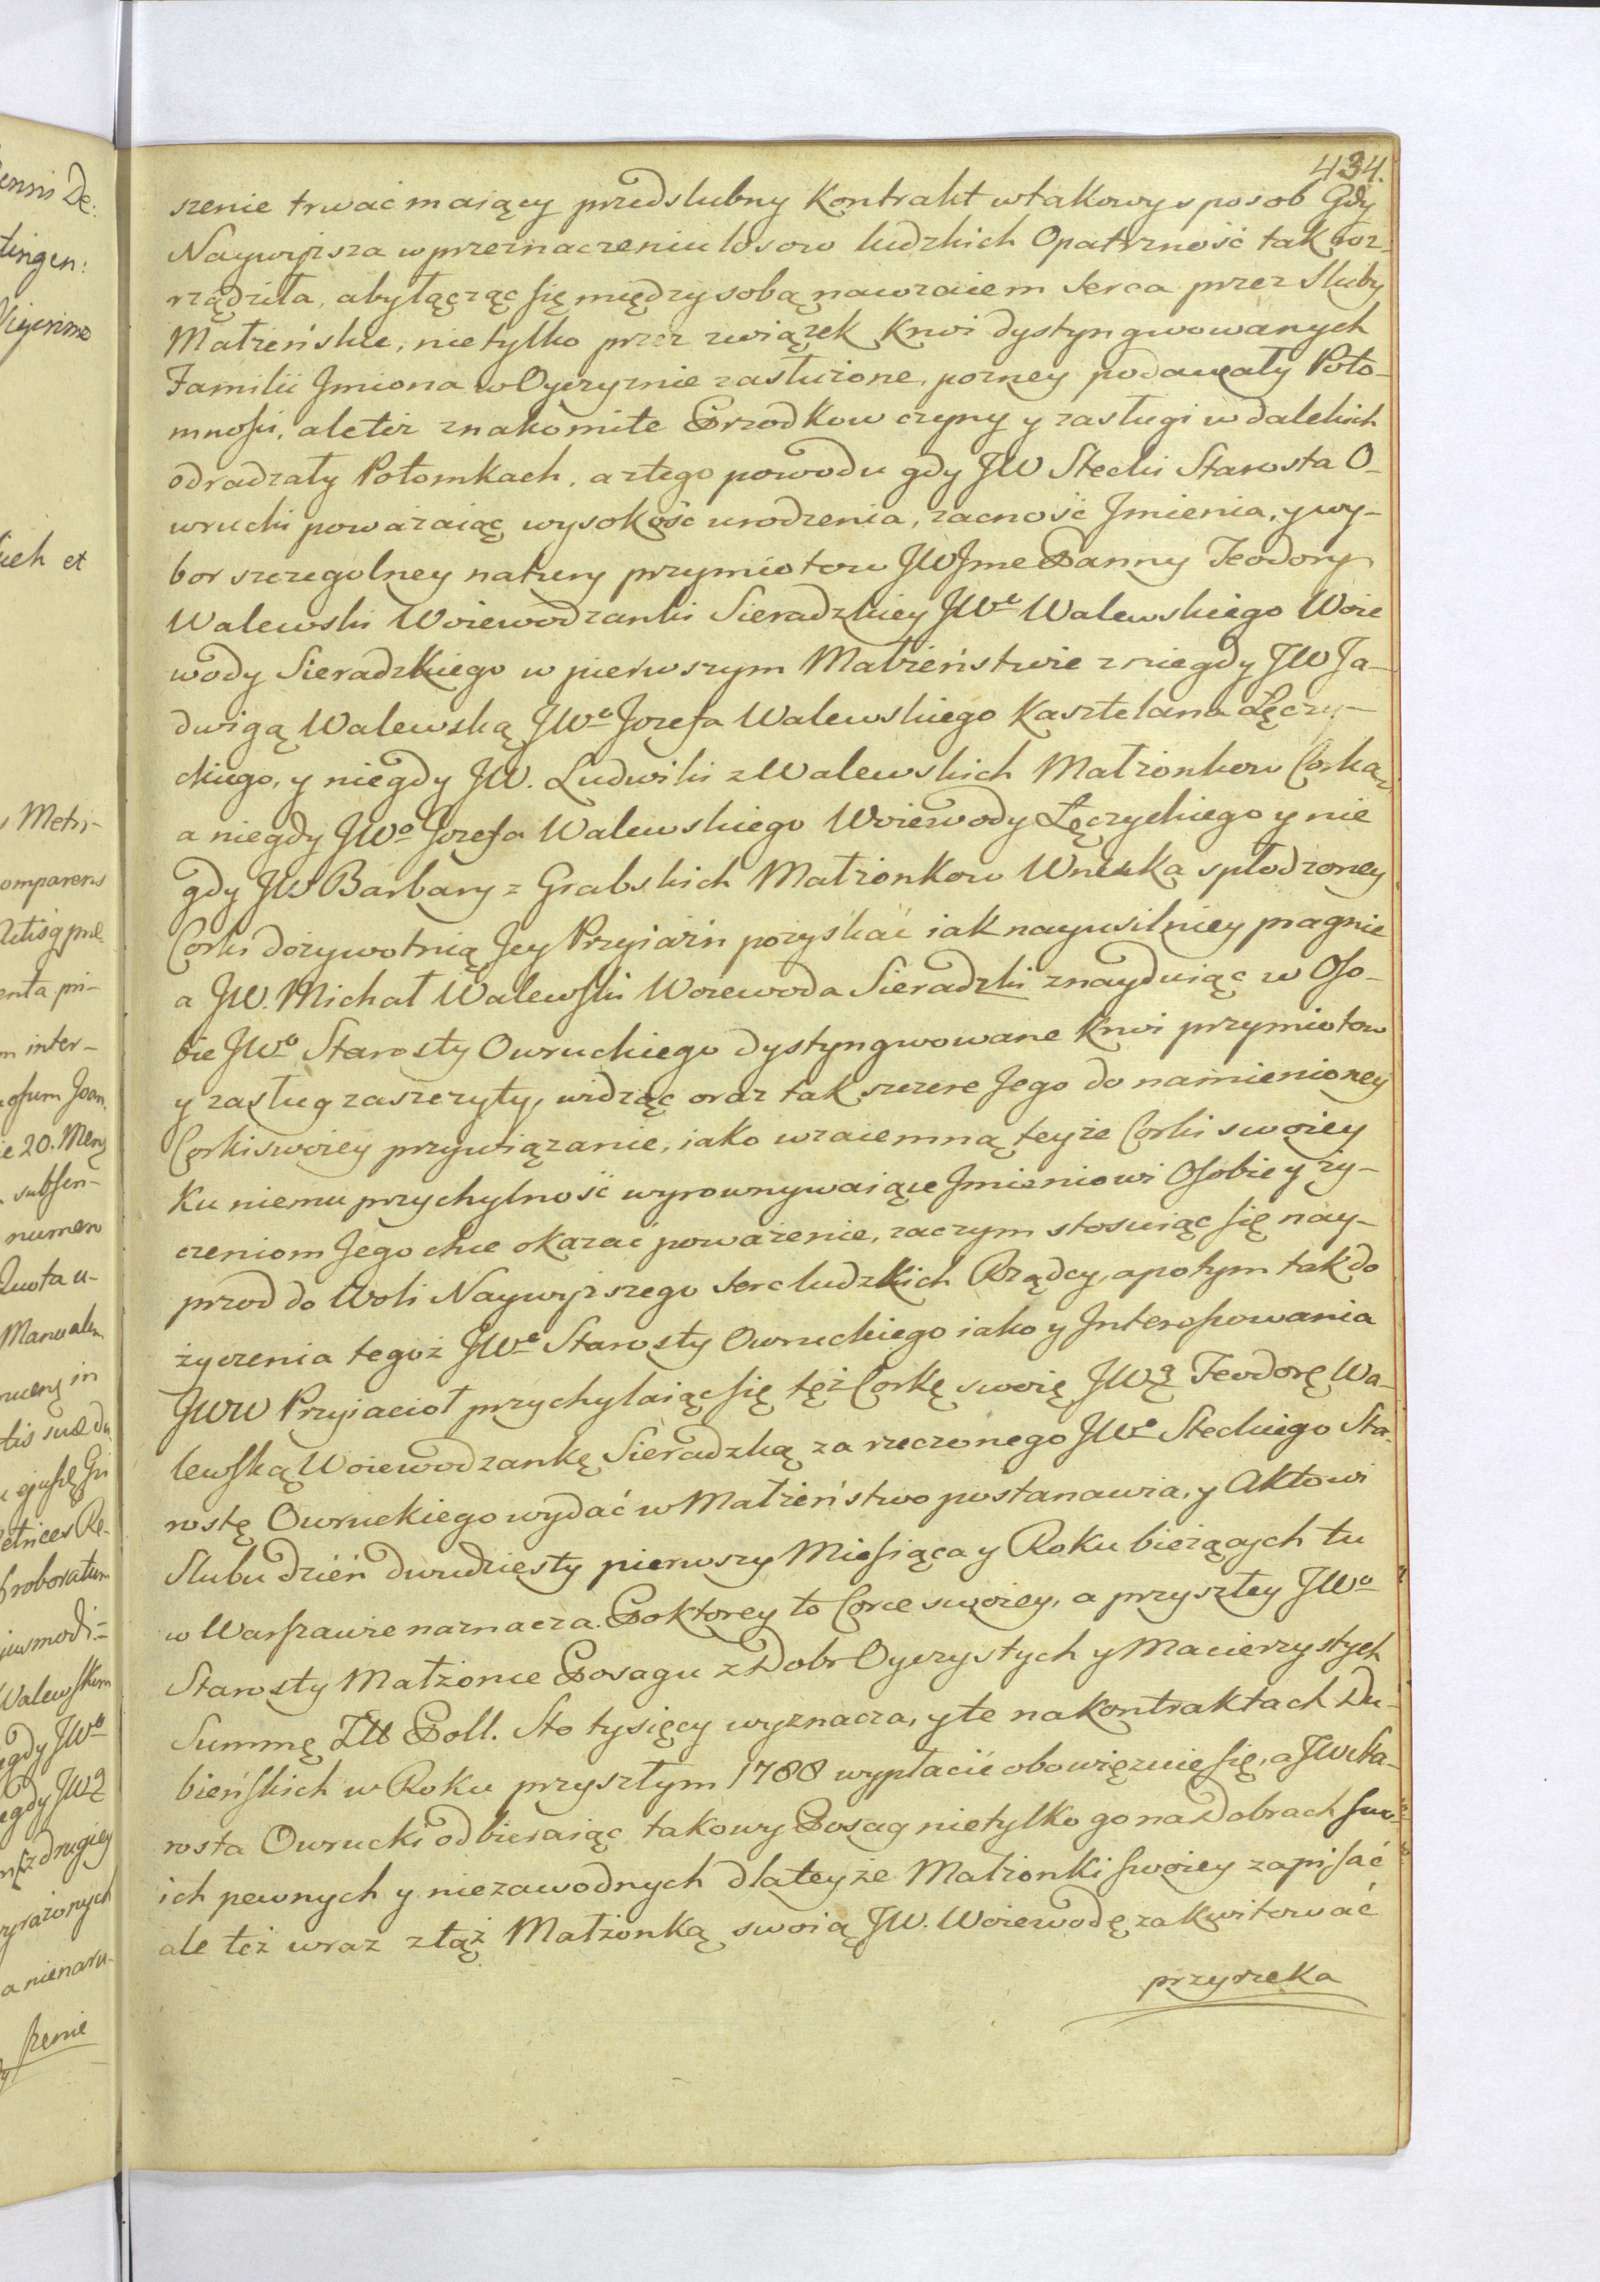 434.
szenie trwać maiący przedslubny Kontrakt w takowy sposob Gdy
Naywyzsza w przeznaczeniu losow ludzkich Opatrzność tak roz-
rządziła, aby łącząc się między sobą nawzaiem Serca przez Sluby
Małzeńskie, nietylko przez związek Krwi dystyngwowanych
Familii Jmiona w Oyczyznie zasłużone, pozney podawały Poto-
mnosci, ale też znakomite Przodkow czyny y zasługi w dalekich
odradzały Potomkach, a z tego powodu gdy JW Stecki Starosta O-
wrucki poważaiąc wysokość urodzenia, zacność Jmienia, y wy-
bor szczegolney natury przymiotow JWJme Panny Teodory
Walewski Woiewodzanki Sieradzkiey JWo Walewskiego Woie
wody Sieradzkiego w pierwszym Małżeństwie z niegdy JW Ja-
dwigą Walewską JWo Jozefa Walewskiego Kasztelana Łęczy-
ckiego, y niegdy JW. Ludwiki z Walewskich Małżonkow Corką,
a niegdy JWo Jozefa Walewskiego Woiewody Łęczyckiego y nie
gdy JW Barbary z Grabskich Małżonkow Wnuka spłodzoney
Corki dożywotnią Jey Przyiaźń pozyskać iak nayusilniey pragnie
a JW. Michał Walewski Woiewoda Sieradzki znayduiąc w Oso-
bie JWo Starosty Owruckiego dystyngwowane Krwi przymiotow
y zasług zaszczyty, widząc oraz tak szczere Jego do namienioney
Corki swoiey przywiązanie, iako wzaiemną teyże Corki swoiey
Ku niemu przychylność wyrownywaiące Jmieniowi Osobie y ży-
czeniom Jego chce okazać poważenie, zaczym stosuiąc się nay-
przod do Woli Naywyższego Serc ludzkich Rządcy, a potym tak do
życzenia tegoż JWo Starosty Owruckiego iako y Jnteressowania
JWW Przyiacioł przychylaiąc się tęż Corkę swoię JWą Teodorę Wa-
lewską Woiewodzankę Sieradzką za rzeczonego JWo Steckiego Sta-
rostę Owruckiego wydać w Małżeństwo postanawia, y Aktowi
Slubu dzień dwudziesty pierwszy Miesiąca y Roku bieżących tu
w Warszawie naznacza. Po ktorey to Corce swoiey, a przyszłey JWo
Starosty Małżonce Posagu z Dobr Oyczystych y Macierzystych
Summę Złł Poll. Sto tysięcy wyznacza, y te na kontraktach Du-
bieńskich w Roku przyszłym 1788 wypłacić obowięzuie się, a JW Sta-
rosta Owrucki odbieraiąc takowy Posag nietylko go na Dobrach swo-
ich pewnych y niezawodnych dla teyże Małżonki swoiey zapisać
ale też wraz z tąż Małżonką swoią JW. Woiewodę zakwitować
przyrzeka